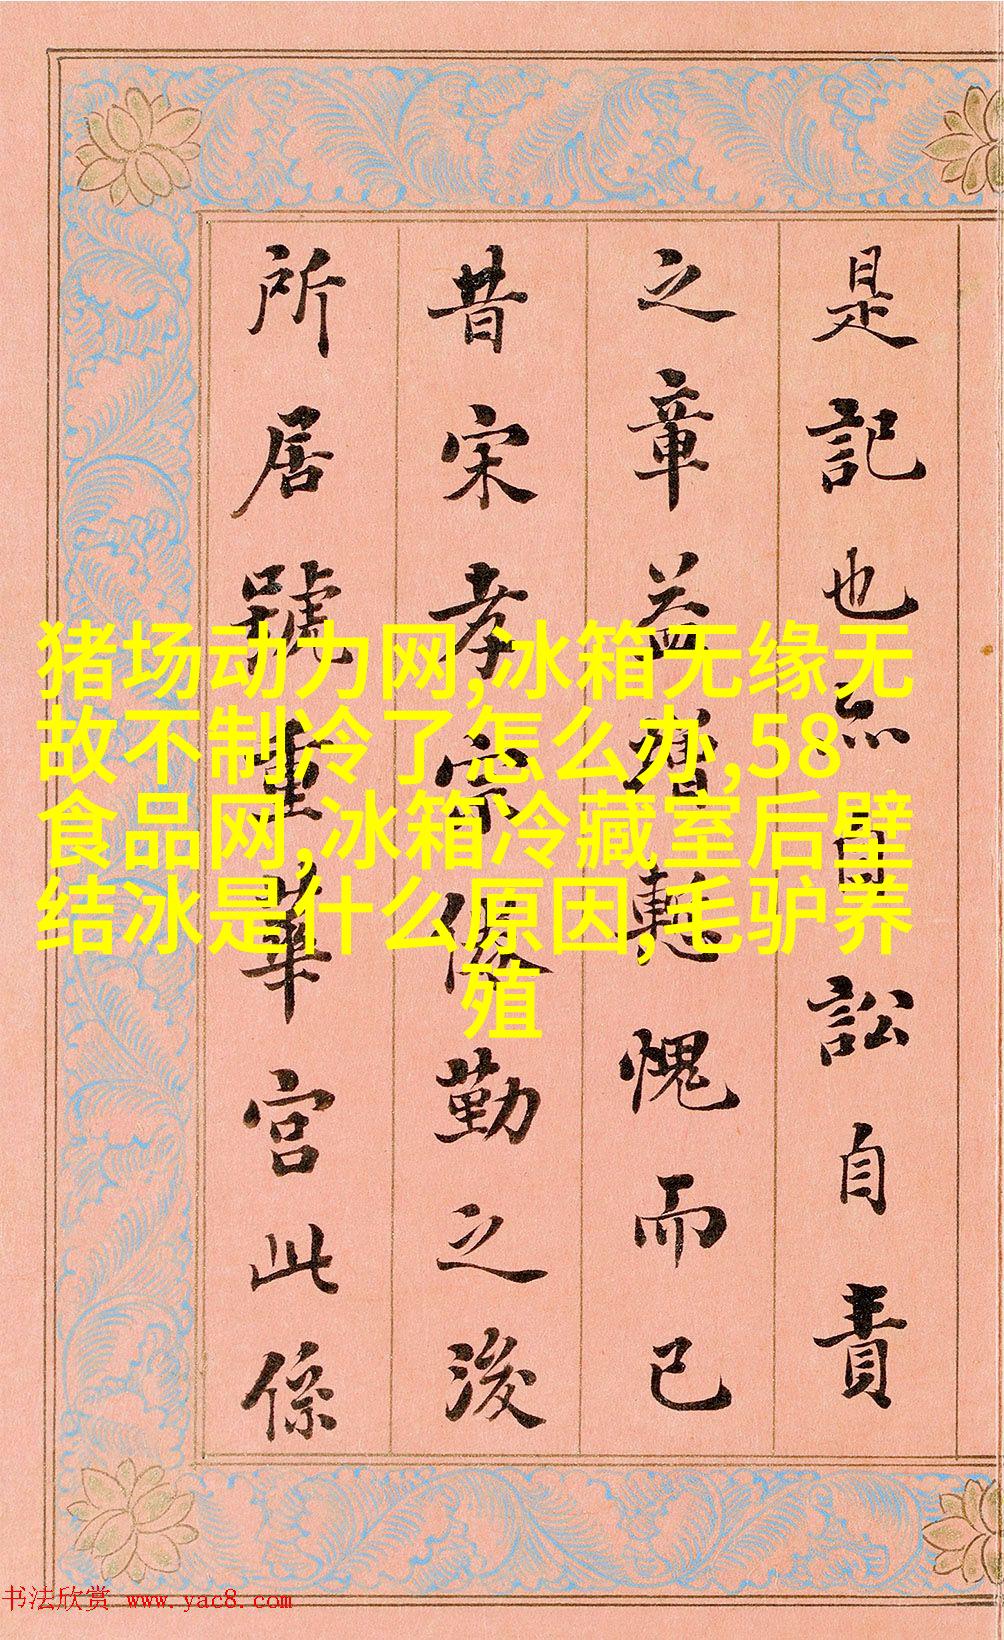 是記也亦自訟自責
之章益增慙愧而已
昔宋孝宗倦勤之後
所居號重華宮此係
猪场动力网,冰箱无缘无
故不制冷了怎么办,58
食品网,冰箱冷藏室后壁
结冰是什么原因,毛驴养
殖
书法欣赏 www.yac8.com